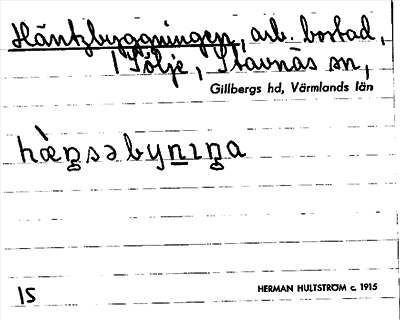 Häntzbyggningen, arb. bostad,
1 Tölje, Stavnäs sn,
Gillbergs hd, Värmlands län
hæ̀ŋsəbyniŋa
15
HERMAN HULTSTRÖM c. 1915